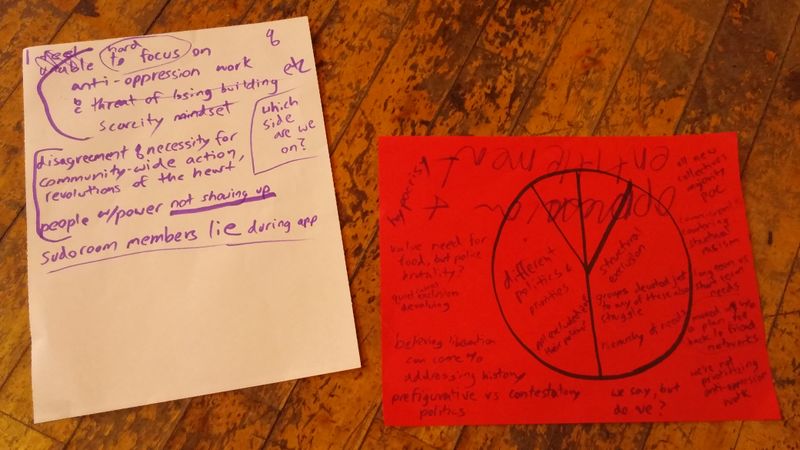 I feel
unable hard to focus on
anti-oppression work
bc threat of losing building etc
scarcity mindset
which
side
are we
on?
disagreement & necessity for
community-wide action,
revolutions of the heart
people w/power not showing up
sudoroom members lie during app
oppression +
entitlement
hypocrisy
value need for
food, but police
brutality?
quiet exclusion
devolving
believing liberation
can come w/o
addressing history
prefigurative vs contestatory
politics
different
politics &
priorities
structural
exclusion
groups devoted just
to any of these
struggle
hierarchy of needs
we say, but
do we?
all new
collectives
majority
POC
countering
structural
racism
long term vs
short term
needs
moved w/o
a plan
back to friend
networks
we're not
prioritizing
anti-oppression
work